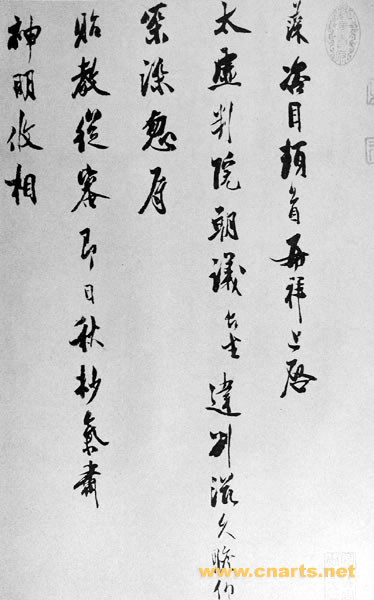 咨目頓首再拜上啓
太虛判院朝議台坐違別滋久瞻仰
深忽辱
貽教從審即日秋杪氣肅
神明攸相
www.cnarts.net